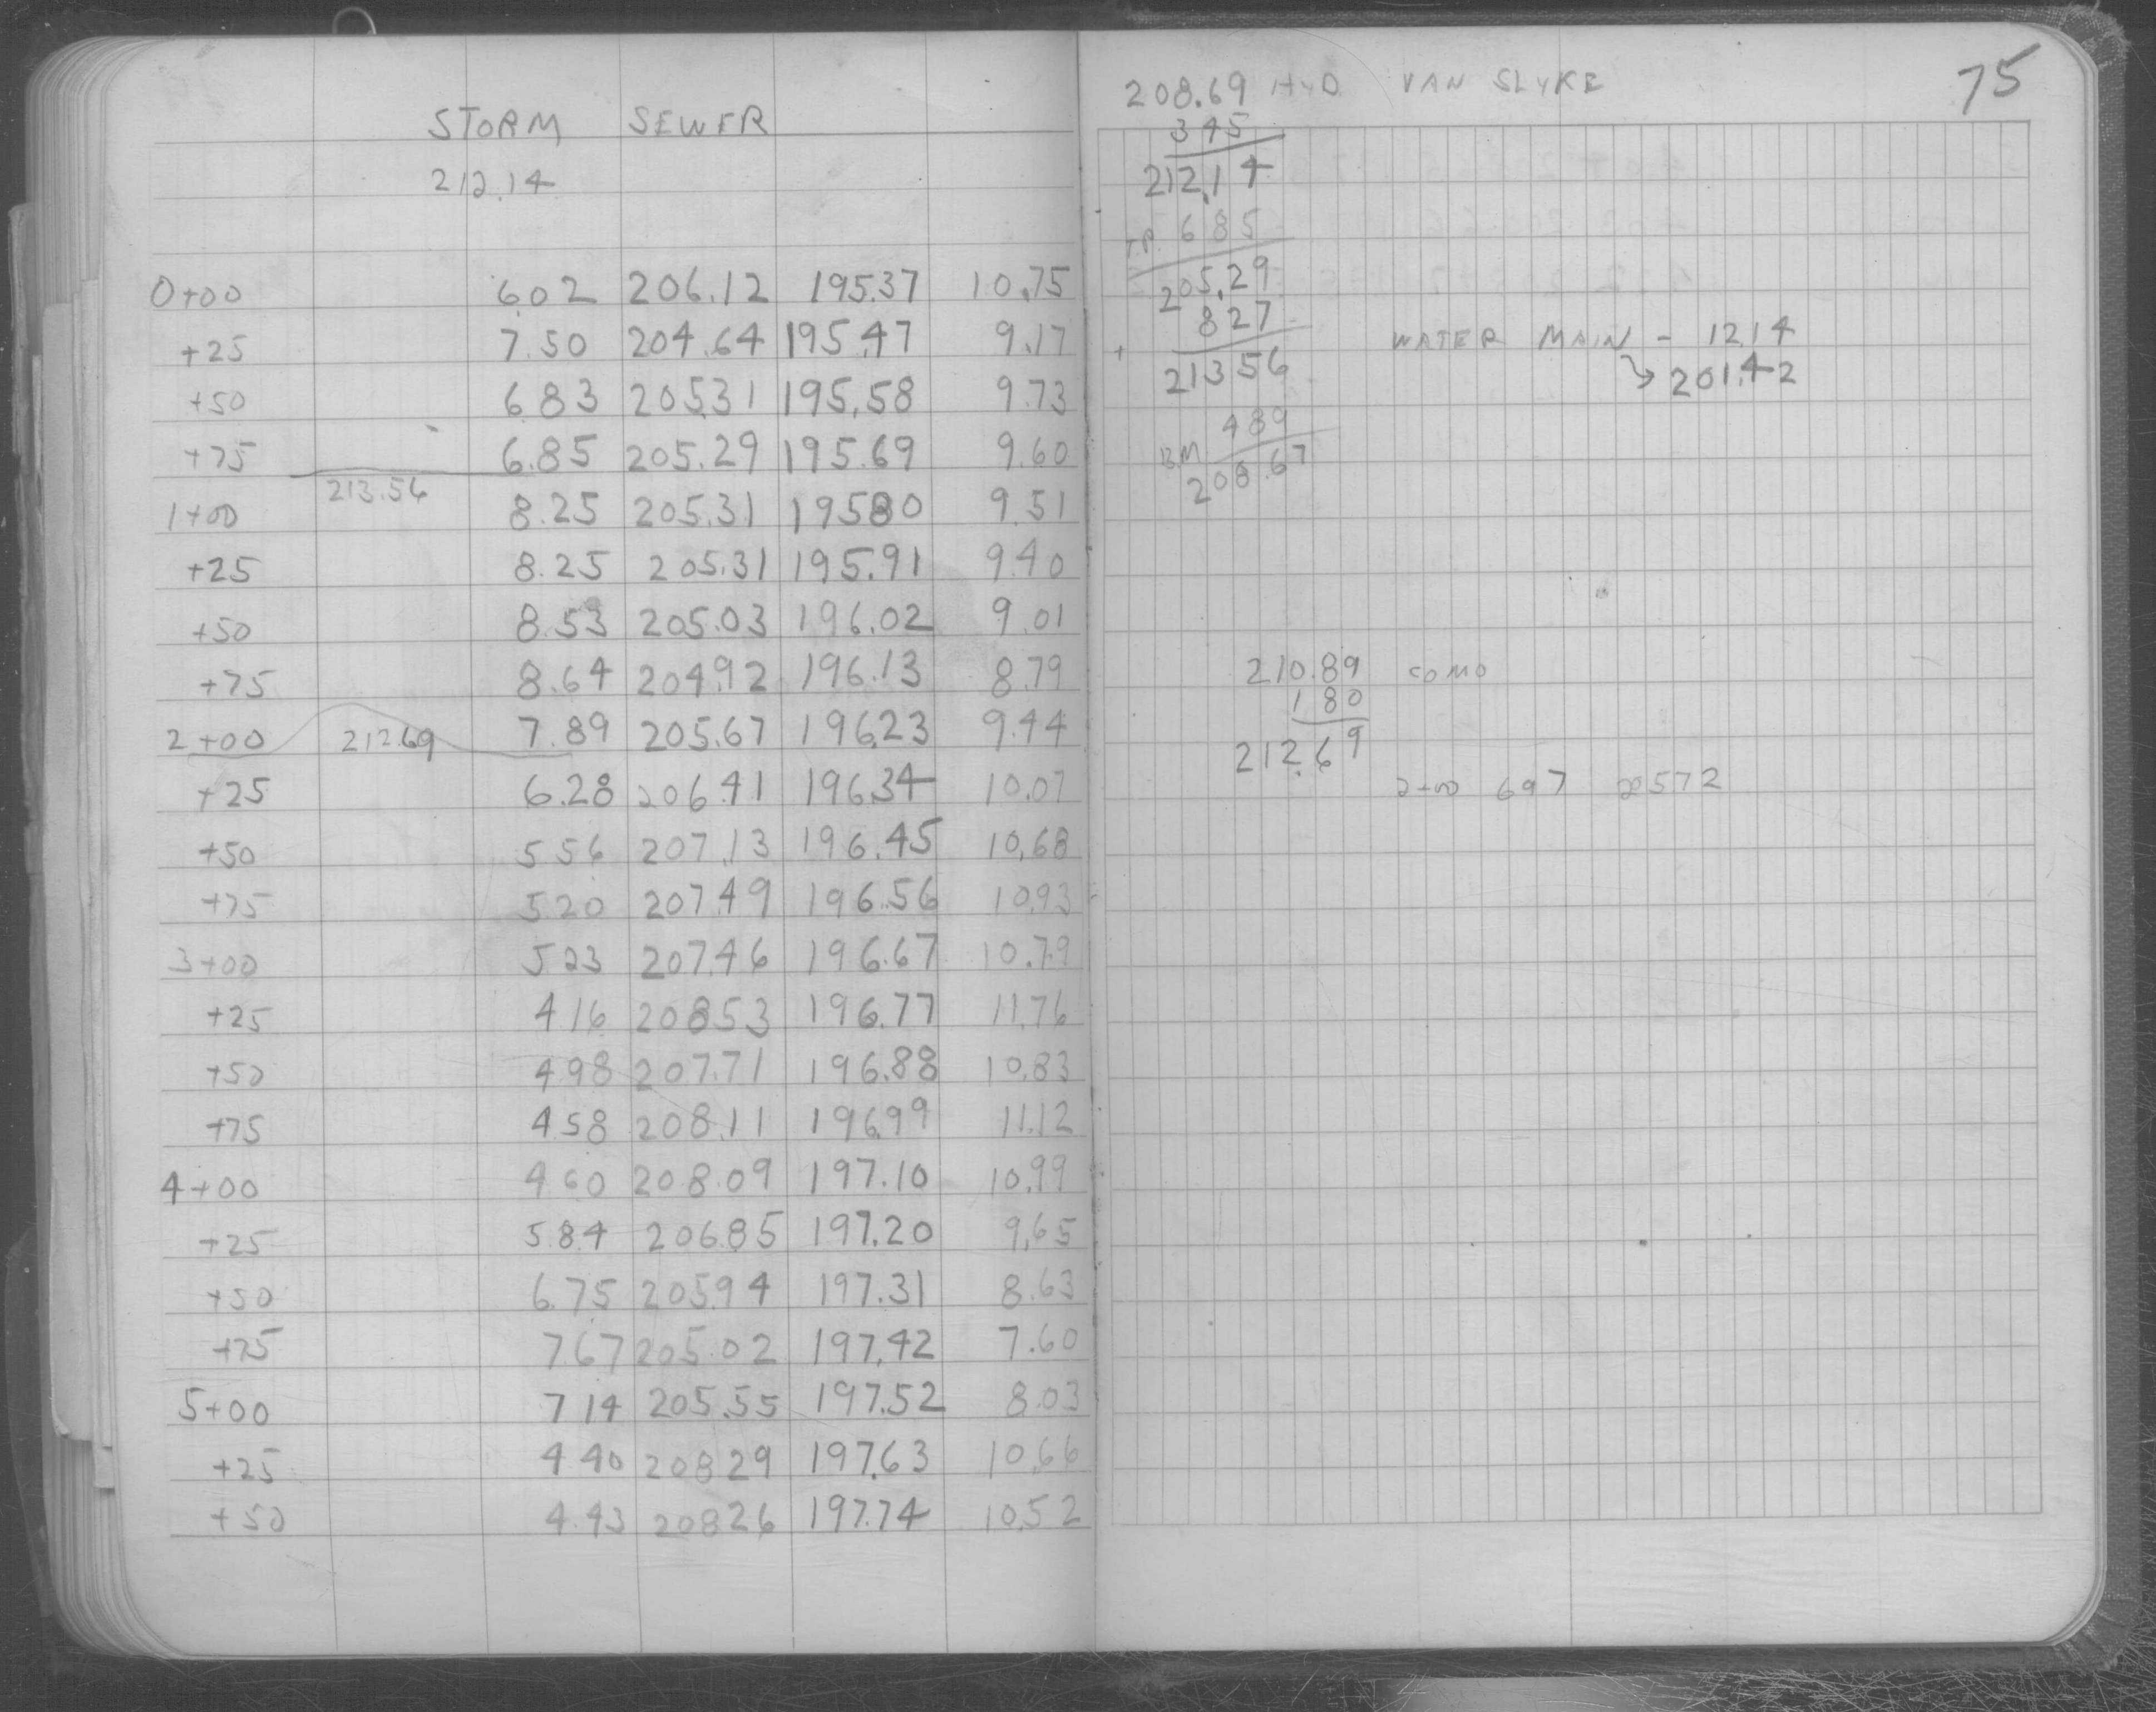 STORM SEWER
212.14
0+00 6.02 206.12 195.37 10.75
+25 7.50 204.64 195.47 9.17
+50 6 83 205.31 195.58 9.73
+75 6.85 205.29 195.69 9.60
213.56
1+00 8.25 205.31 19580 9.51
+25 8.25 205.31 195.91 9.40
+50 8.53 205.03 196.02 9.01
+75 8.64 204.92 196.13 8.79
2+00 212.69 7.89 205.67 196.23 9.44
+25 6.28 206.41 196.34 10.07
+50 5 56 207.13 196.45 10.68
+75 5 20 207.49 196.56 10.93
3+00 5 23 207.46 196.67 10.79
+25 4 16 208 53 196.77 11.76
+50 4 98 207.71 196.88 10.83
+75 4 58 208.11 196.99 11.12
4+00 4 60 208.09 197.10 10.99
+25 5 84 206.85 197.20 9.65
+50 6.75 205.94 197.31 8.63
+75 7.67 205.02 197.42 7.60
5+00 7 14 205.55 197.52 8.03
+25 4 40 208 29 197.63 10.66
+50 4.43 208 26 197.74 10.52
75
208.69 HYD VAN SLYKE
3 45
212.14
T.P. 6 85
205.29
+ 8 27
213 56
4 89
BM 208.67
WATER MAIN - 12.14
201.42
210.89 COMO
1 80
212.69
2+00 6 97 20572